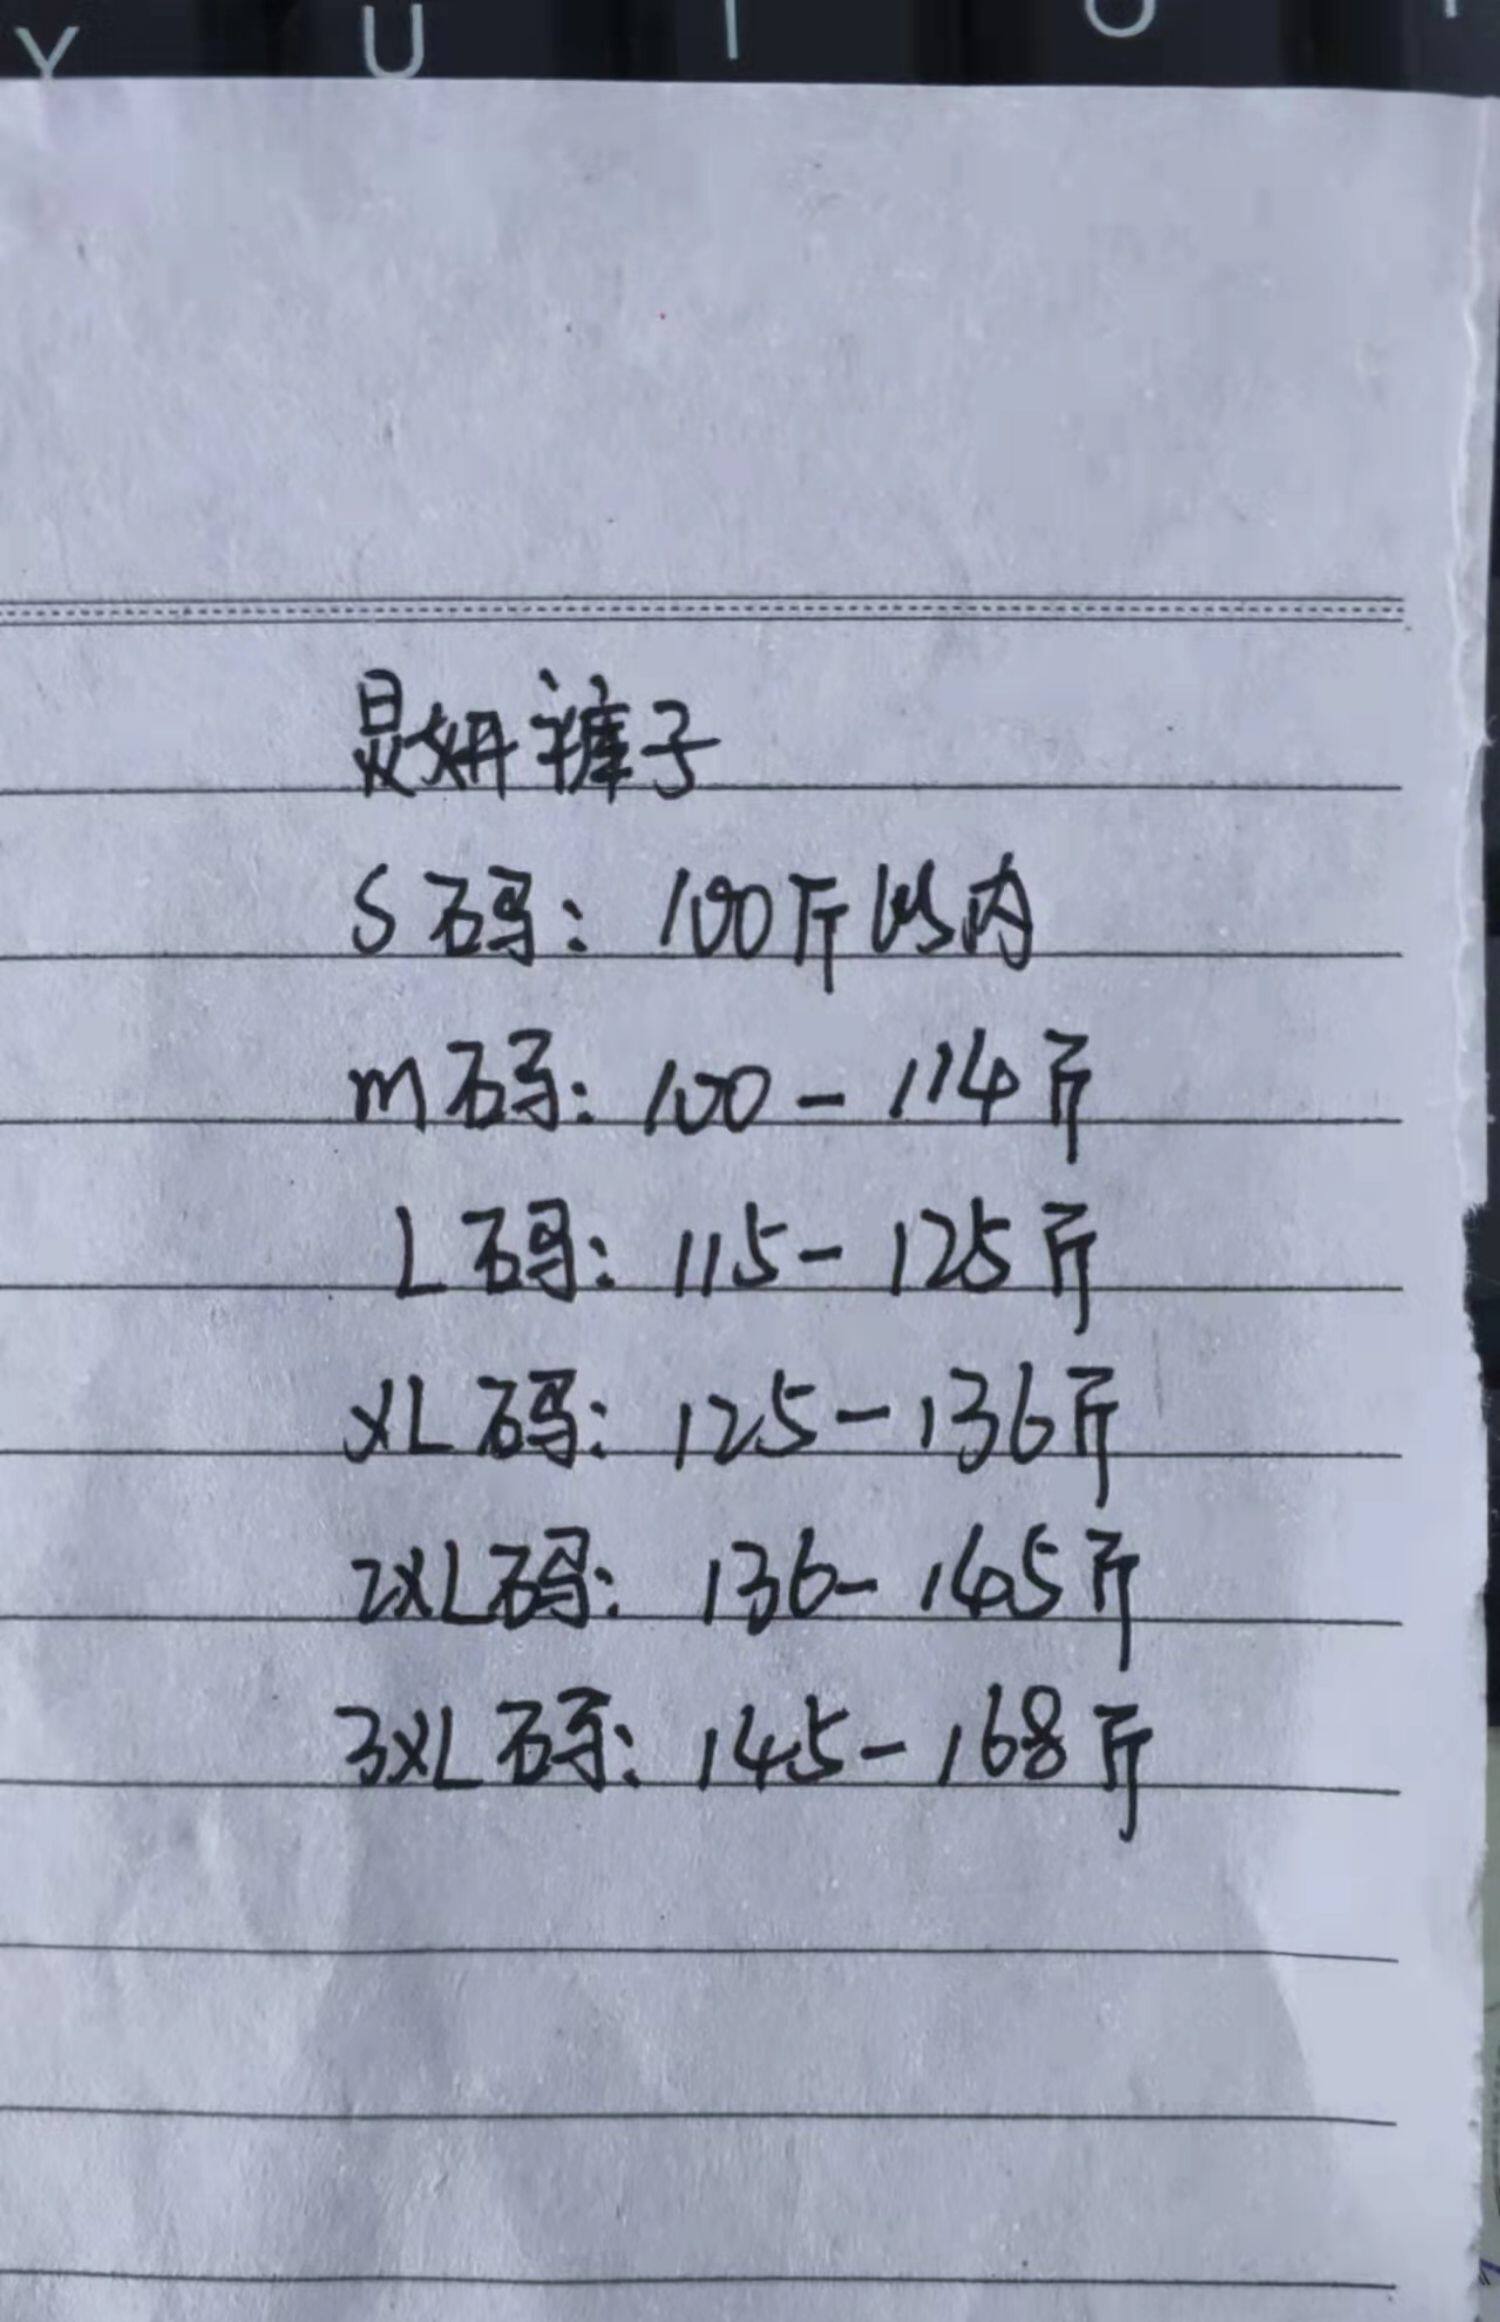 Y U I O
是妍裤子
S码：100斤以内
m码：100-114斤
L码：115-125斤
XL码：125-136斤
2XL码：136-145斤
3XL码：145-168斤